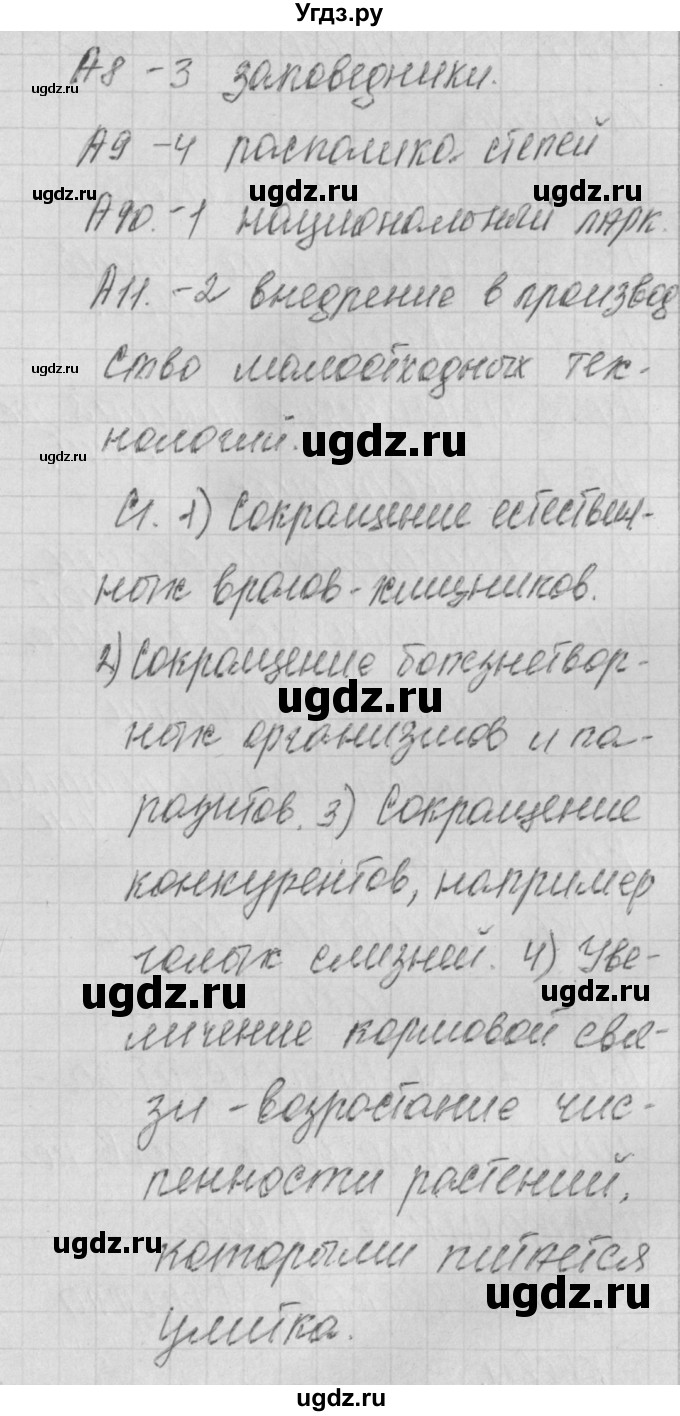 Угдз.ру
А8 -3 заповедники.
ugdz.ru
А9 -4 распашка степей
ugdz.ru ugdz.ru ugdz.ru
А10. -1 национальный парк.
А11. -2 внедрение в производ
ство малоотходных тех-
ugdz.ru
нологий.
ugdz.ru ugdz.ru
С1. 1) Сокращение естествен-
ных врагов - хищников.
2) Сокращение болезнетвор-
ugdz.ru
ных организмов и па-
разитов. 3) Сокращение
конкурентов, например
голых слизней. 4) Уве-
ugdz.ru ugdz.ru
личение кормовой свя-
зи - возростание чис-
ленности растений,
которыми питается
ugdz.ru ugdz.ru
улитка.
ugdz.ru